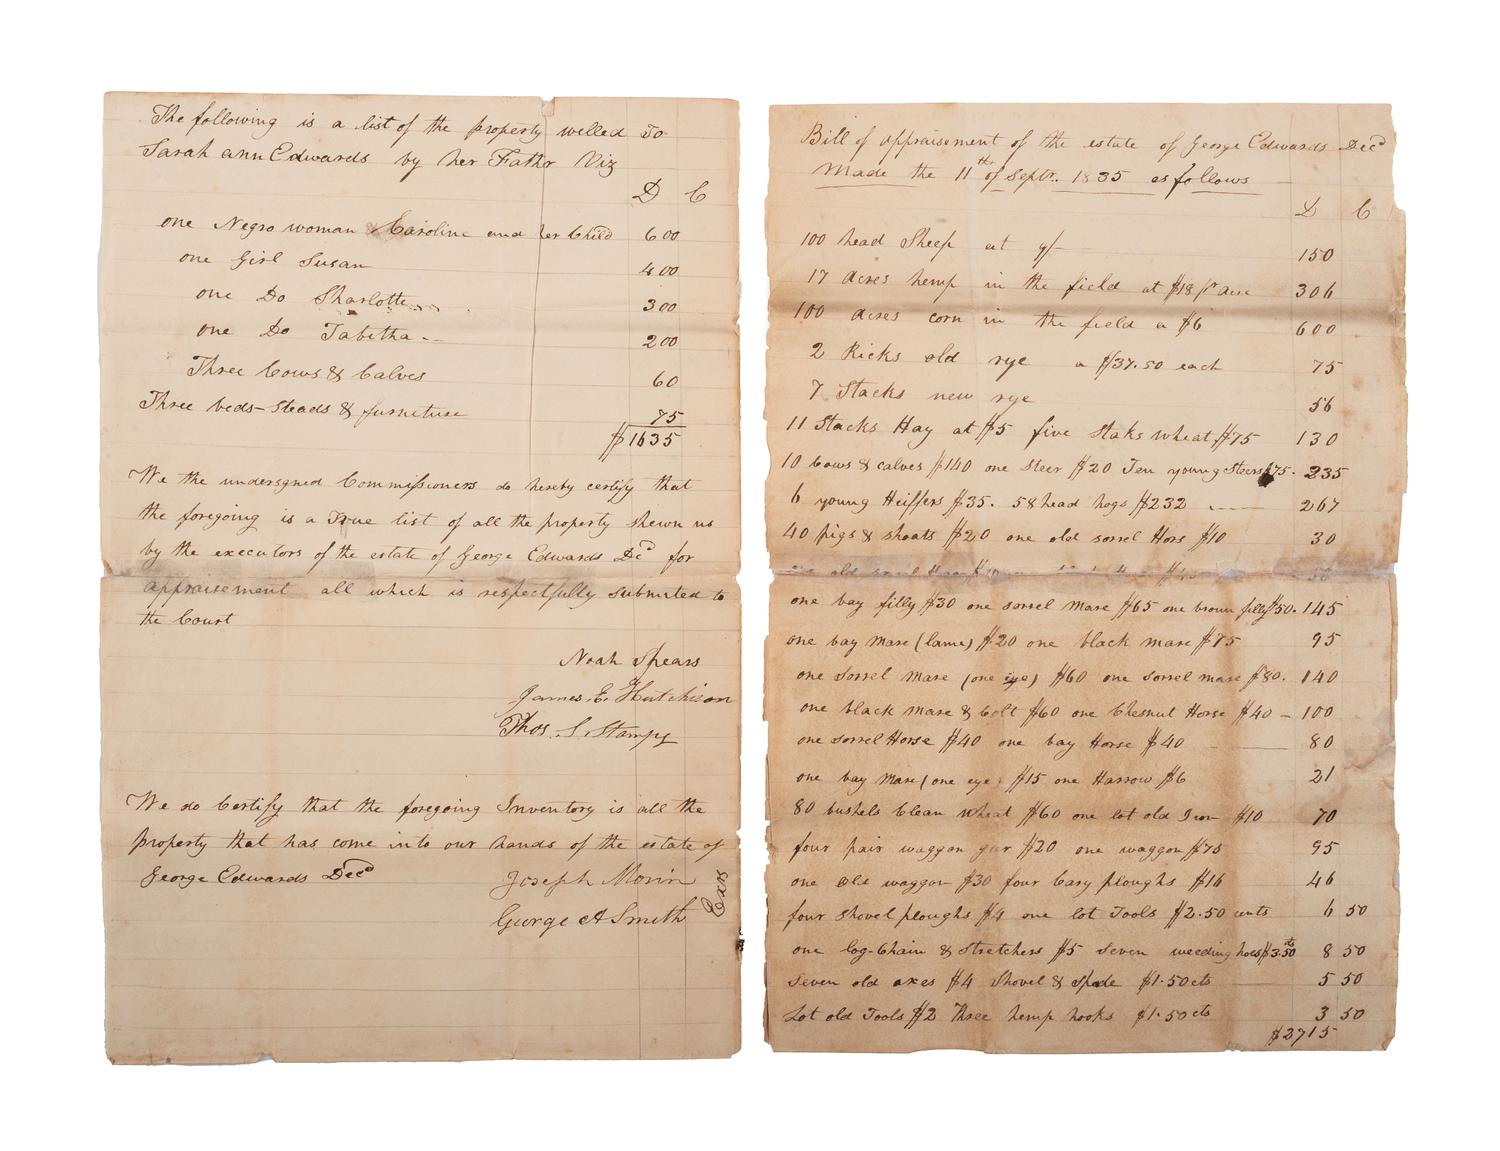 The following is a list of the property willed To
Sarah ann Edwards by her Father Viz
D C
one Negro woman Caroline and her Child 600
one Girl Susan 400
one Do Sharlotte 300
one Do Tabitha 200
Three Cows & Calves 60
Three beds-steads & furneture 75
$1635
We the undersgned Commissioners do hereby certify that
the foregoing is a True list of all the property shewn us
by the executors of the estate of George Edwards Decd for
appraisement all which is respectfully submited to
the Court
Noah Spears
James E. Hutchison
Thos. S. Stamps
We do Certify that the foregoing Inventory is all the
property that has come into our hands of the estate of
George Edwards Decd
Joseph Morin
George A Smith
Exrs
Bill of appraisement of the estate of George Edwards Decd
Made the 11th of Septr. 1835 as follows
D C
100 head Sheep at 9/- 150
17 Acres hemp in the field at $18 pr acre 306
100 acres corn in the field a $6 600
2 Ricks old rye a $37.50 each 75
7 Stacks new rye 56
11 Stacks Hay at $5 five Staks wheat $75 130
10 Cows & calves $140 one Steer $20 Ten young Steers $75. 235
6 young Heiffers $35. 58 head hogs $232 267
40 pigs & shoats $20 one old sorrel Hors $10 30
one bay filly $30 one sorrel mare $65 one brown filly $50. 145
one bay mare (lame) $20 one black mare $75 95
one sorrel mare (one eye) $60 one sorrel mare $80. 140
one black mare & Colt $60 one Chesnut Horse $40 - 100
one sorrel Horse $40 one bay Horse $40 80
one bay mare (one eye) $15 one Harrow $6 21
80 bushels Clean wheat $60 one lot old Iron $10 70
four pair waggon gear $20 one waggon $75 95
one old waggon $30 four Cary ploughs $16 46
four shovel ploughs $4 one lot Tools $2.50 cents 6 50
one log-Chain & Stretchers $5 seven weeding hoes $3.50 cts 8 50
seven old axes $4 Shovel & Spade $1.50 cts 5 50
Lot old Tools $2 Three hemp hooks $1.50 cts 3 50
$2715